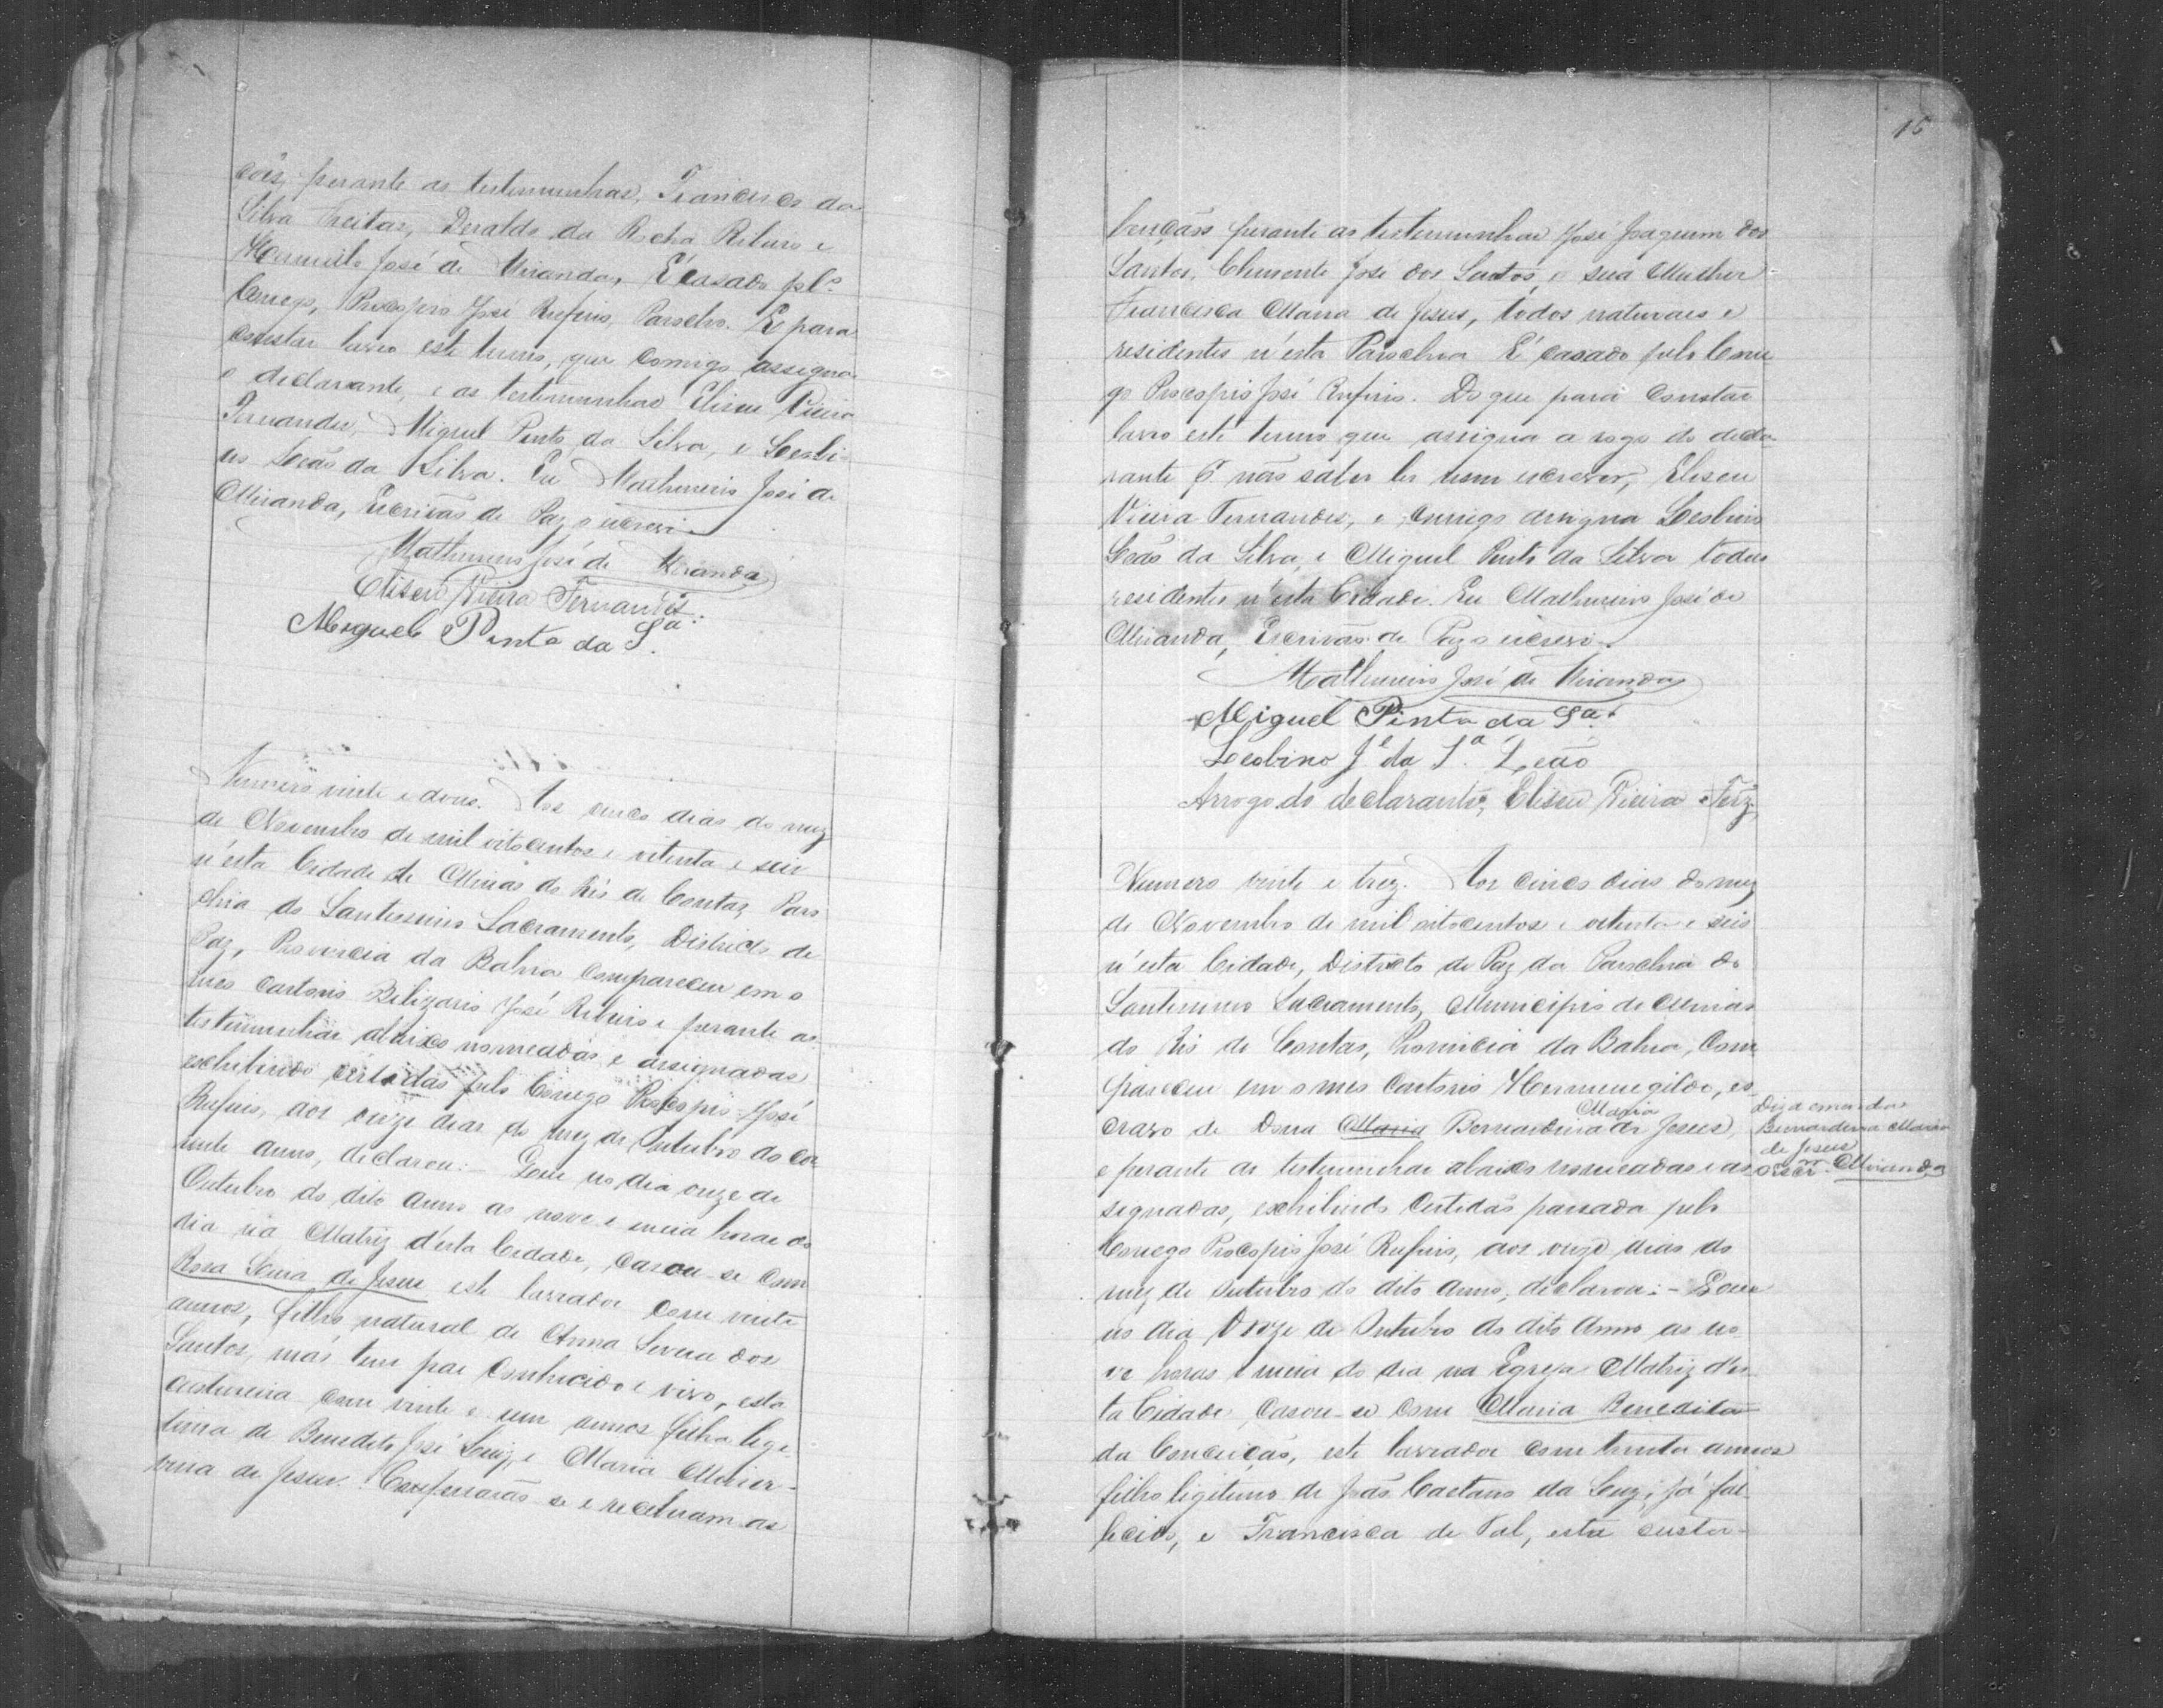 cão, perante as testemunhas, Francisco da
Silva Freitas, Deraldo da Rocha Ribeiro e
José de Miranda, E' casado pl.º
Conego, Procopio José Rufino, Parocho. E para
constar lavro este termo, que comigo assigna
o declarante, e as testemunhas Eliseu Vieira
Fernandes, Miguel Pinto da Silva, e Lesbi-
no Leão da Silva. Eu Mathurino José de
Miranda, Escrivão de Paz o escrevi.
Mathurino José de Miranda
Eliseu Vieira Fernandes.
Miguel Pinto da S.ª
Numero vinte e dous. Aos cinco dias do mez
de Novembro de mil oitocentos e oitenta e seis
n'esta Cidade de Minas do Rio de Contas, Paro
chia do Santissimo Sacramento, Districto de
Paz, Provincia da Bahia compareceu em o
meo cartorio Belizario José Ribeiro e perante as
testemunhas abaixo nomeadas e assignadas
exhibindo certidão pelo Conego Procopio José
Rufino, aos onze dias do mez de Outubro do cor
rente anno, declarou: Que no dia onze de
Outubro do dito anno as nove e meia horas do
dia na Matriz d'esta Cidade, casou-se com
Rosa Lina de Jesus este lavrador com vinte
annos, filho natural de Anna Severa dos
Santos, não tem pae conhecido e vivo, esta
costureira com vinte e um annos filha legi-
tima de Benedito José Luiz, e Maria
de Jesus. Confessarão-se e receberam as
15
bençãos perante as testemunhas José Joaquim dos
Santos, Clemente José dos Santos, e sua Mulher
Francisca Maria de Jesus, todos naturaes e
residentes n'esta Parochia E' casado pelo Cone
go Procopio José Rufino. Do que para constar
lavro este termo que assigna a rogo do decla-
rante p. não saber ler nem escrever, Eliseu
Vieira Fernandes, e comigo assigna Lesbino
Leão da Silva, e Miguel Pinto da Silva todos
residentes n'esta Cidade. Eu Mathurino José de
Miranda, Escrivão de Paz o escrevi.
Mathurino José de Miranda
Miguel Pinto da S.ª
Lesbino J.e da S.ª Leão
Arrogo do declarante, Eliseu Vieira Frz.
Numero vinte e trez. Aos cinco dias do mez
de Novembro de mil oitocentos e oitenta e seis
n'esta Cidade, Districto de Paz da Parochia do
Santissimo Sacramento, Municipio de Minas
do Rio de Contas, Provincia da Bahia, com
pareceu em o meo Cartorio Hermenegildo, es
cravo de Dona Maria Bernardina Maria de Jesus,
e perante as testemunhas abaixo nomeadas e as
signadas, exhibindo certidão passada pelo
Conego Procopio José Rufino, aos onze dias do
mez de Outubro do dito anno, declarou: - Que
no dia Onze de Outubro do dito Anno as no
ve horas e meia do dia na Egreja Matriz d'es
ta Cidade casou-se com Maria Benedita
da Conceição, este lavrador com trinta annos
filho legitimo de João Caetano da Luz, já fal
lecido, e Francisca de Tal, esta costu-
Diz a emenda
Bernardina Maria
de Jesus
O Escr.m Miranda